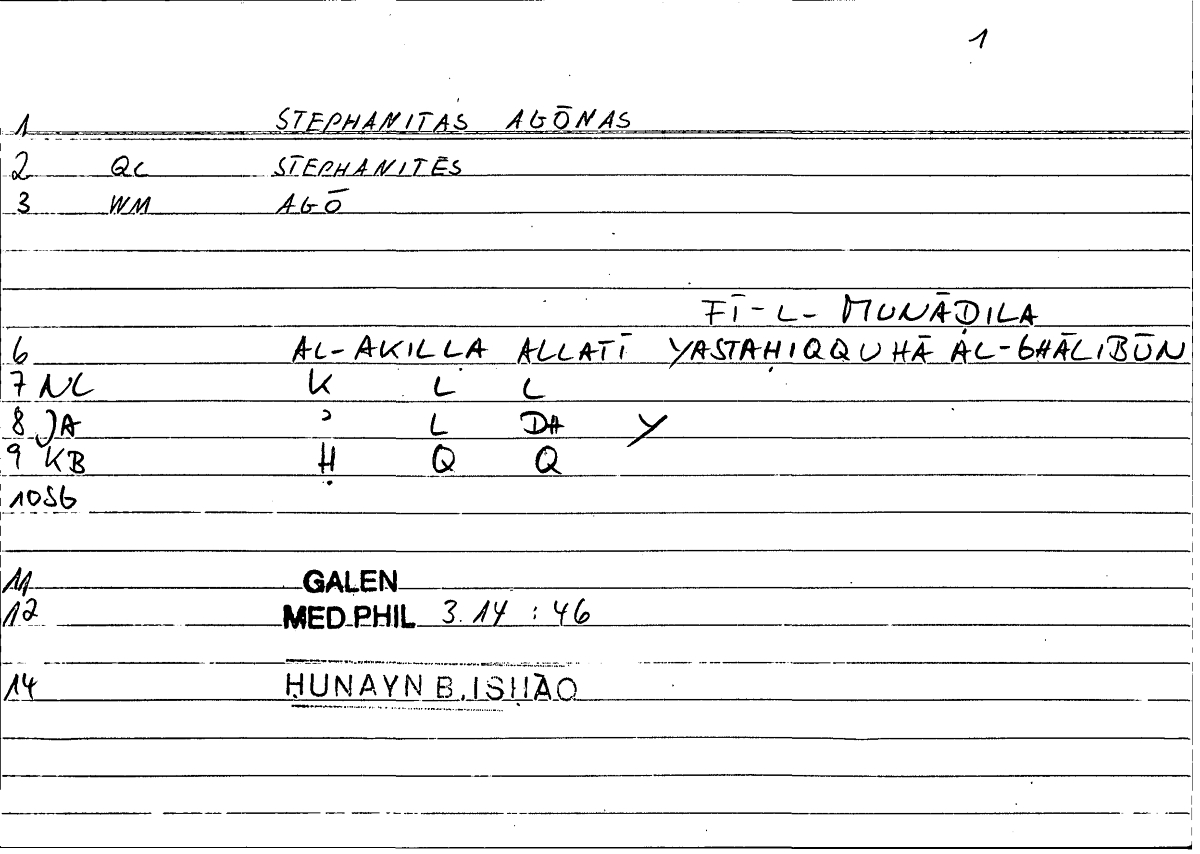 1
1 STEPHANITAS AGŌNAS
2 QC STEPHANITĒS
3 WM AGŌ
FĪ-L-MUNĀḌILA
6 AL-AKILLA ALLATĪ YASTAḤIQQUHĀ AL-GHĀLIBŪN
7 NC K L L
8 JA ʾ L DH Y
9 KB Ḥ Q Q
10 SG
11 GALEN
12 MED.PHIL 3.14 : 46
14 ḤUNAYN B.ISḤĀQ